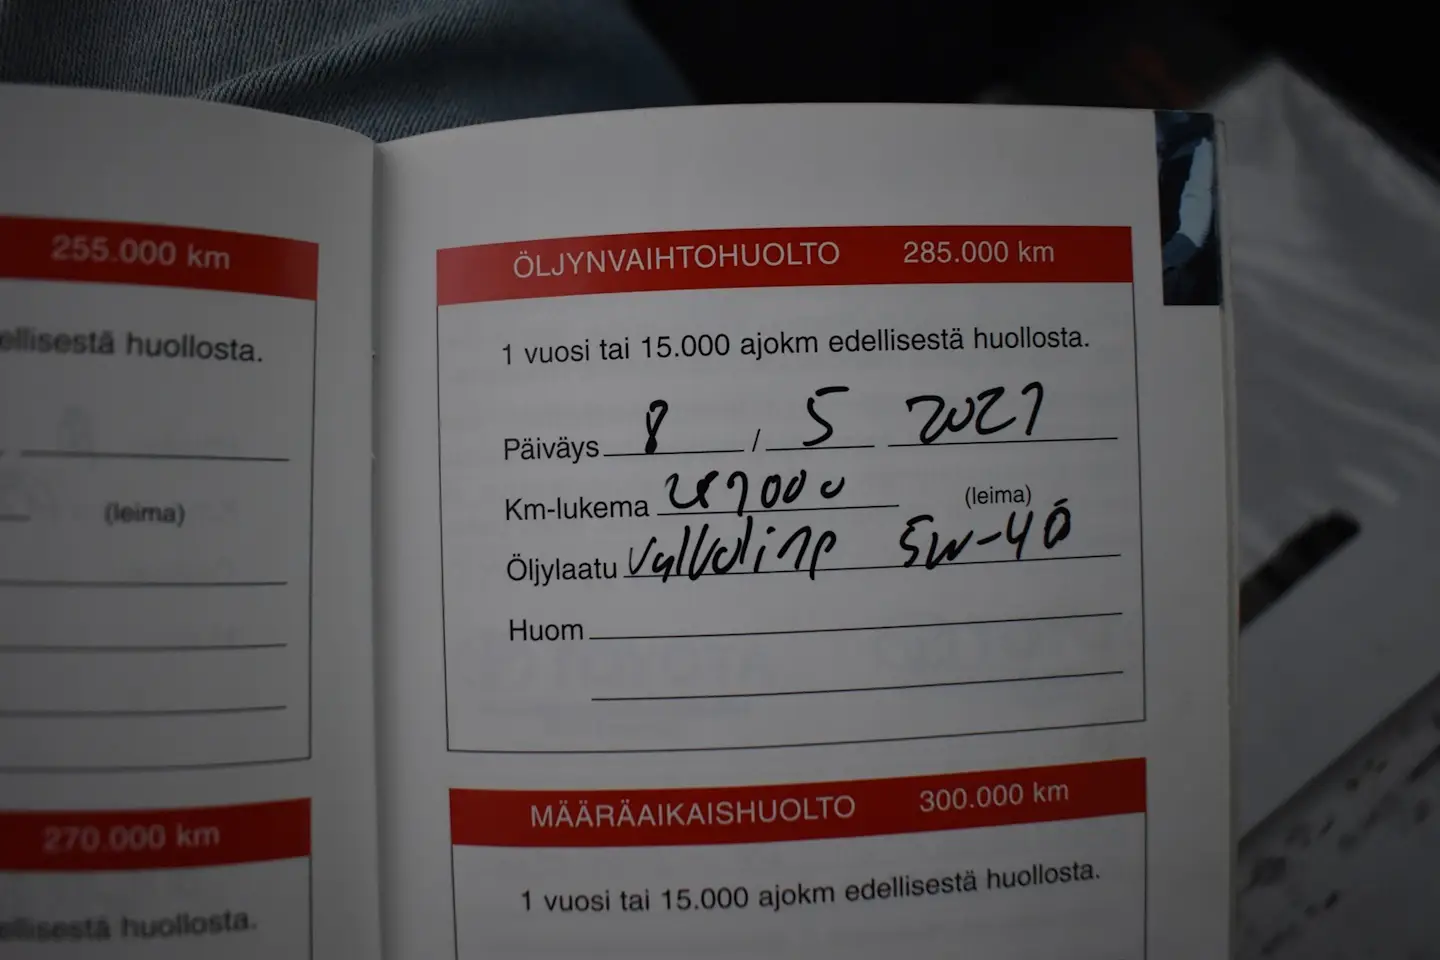 255.000 km
ellisestä huollosta.
(leima)
270.000 km
ellisestä huollosta.
ÖLJYNVAIHTOHUOLTO 285.000 km
1 vuosi tai 15.000 ajokm edellisestä huollosta.
Päiväys 8 / 5 2021
Km-lukema 287000 (leima)
Öljylaatu Valvoline 5W-40
Huom
MÄÄRÄAIKAISHUOLTO 300.000 km
1 vuosi tai 15.000 ajokm edellisestä huollosta.